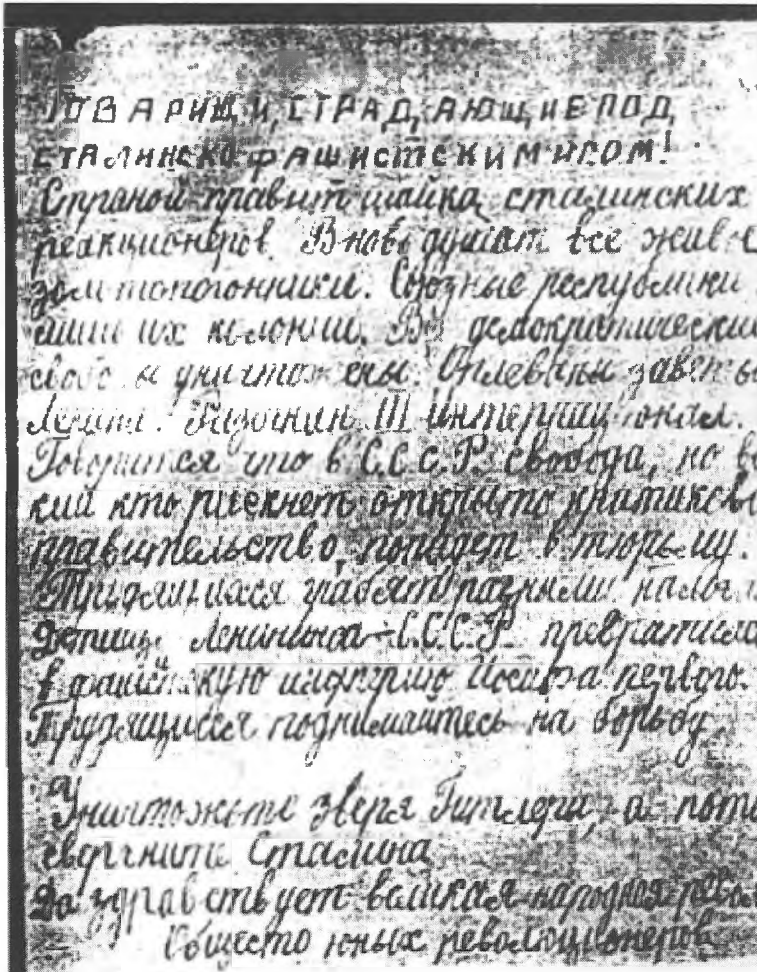 ТОВАРИЩИ, СТРАДАЮЩИЕ ПОД
СТАЛИНСКО-ФАШИСТСКИМ ИГОМ!
Страной правит шайка сталинских
реакционеров. Вновь душат все живое
золотопогонники. Союзные республики
их колонии. Все демократические
свободы уничтожены. Оплеваны заветы
Ленина. Разогнан III Интернационал.
Говорится что в С.С.С.Р. свобода, но
кий кто рискнет открыто критиковать
правительство, попадет в тюрьму.
Трудящихся грабят разными налогами
Детище Ленина С.С.С.Р. превратилось
в фашистскую империю Иосифа первого.
Трудящиеся поднимайтесь на борьбу
Уничтожьте зверя Гитлера, а пот
свергните Сталина
Да здравствует великая народная револ
Общесто юных революционеров